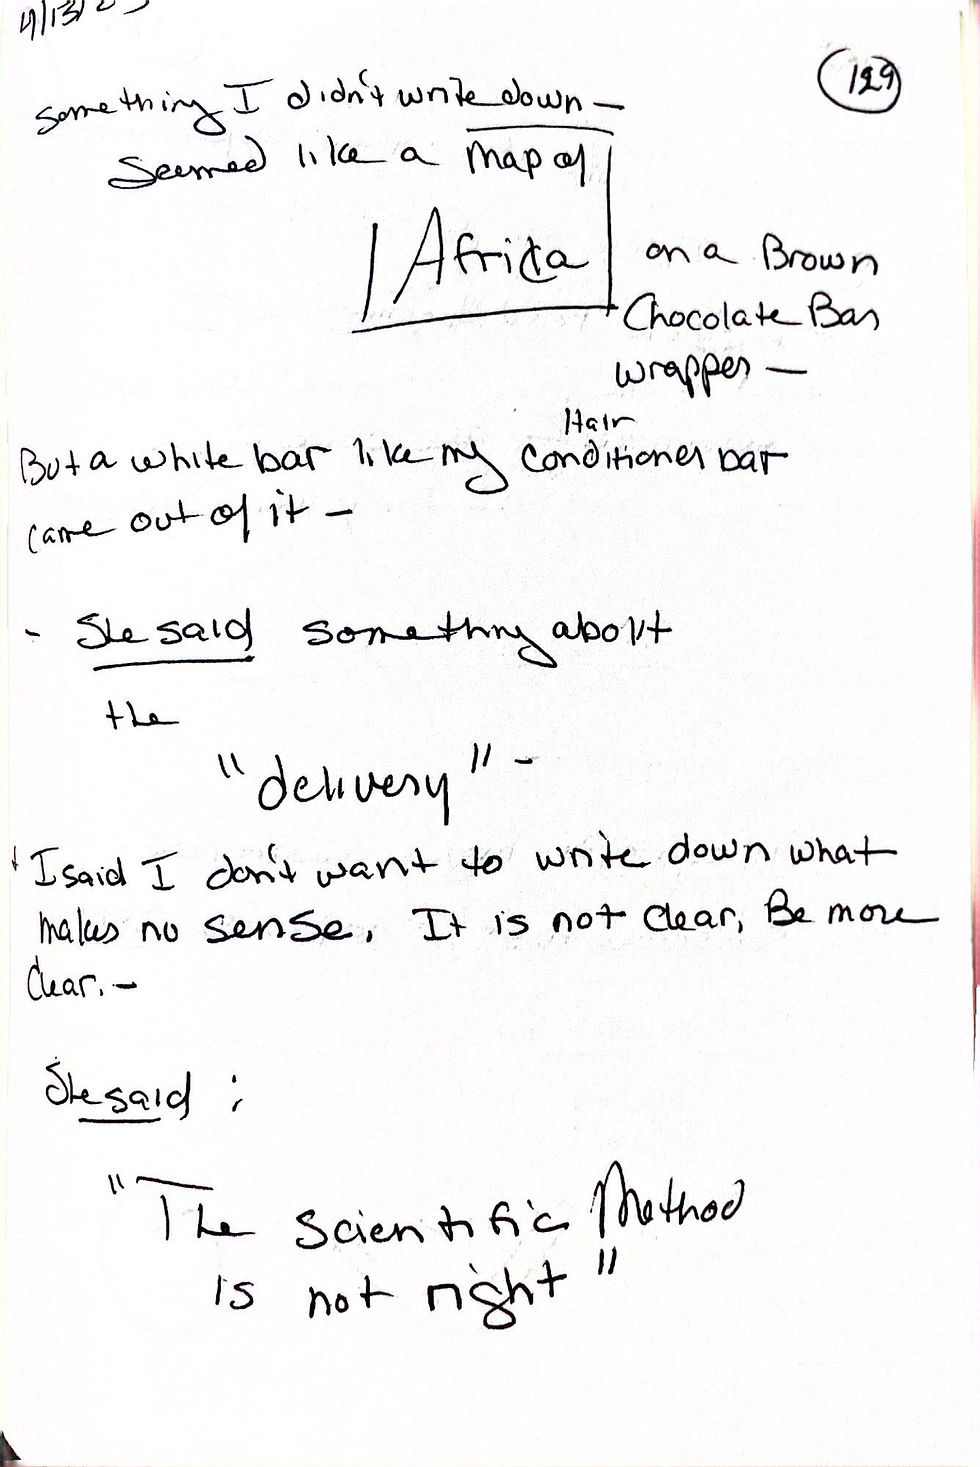 4/13/23
129
something I didn't write down —
seemed like a map of
Africa on a Brown
Chocolate Bar
wrapper —
Hair
But a white bar like my conditioner bar
came out of it —
- She said something about
the
"delivery" -
I said I don't want to write down what
makes no sense. It is not clear, Be more
clear. -
She said :
"The Scientific Method
is not right"